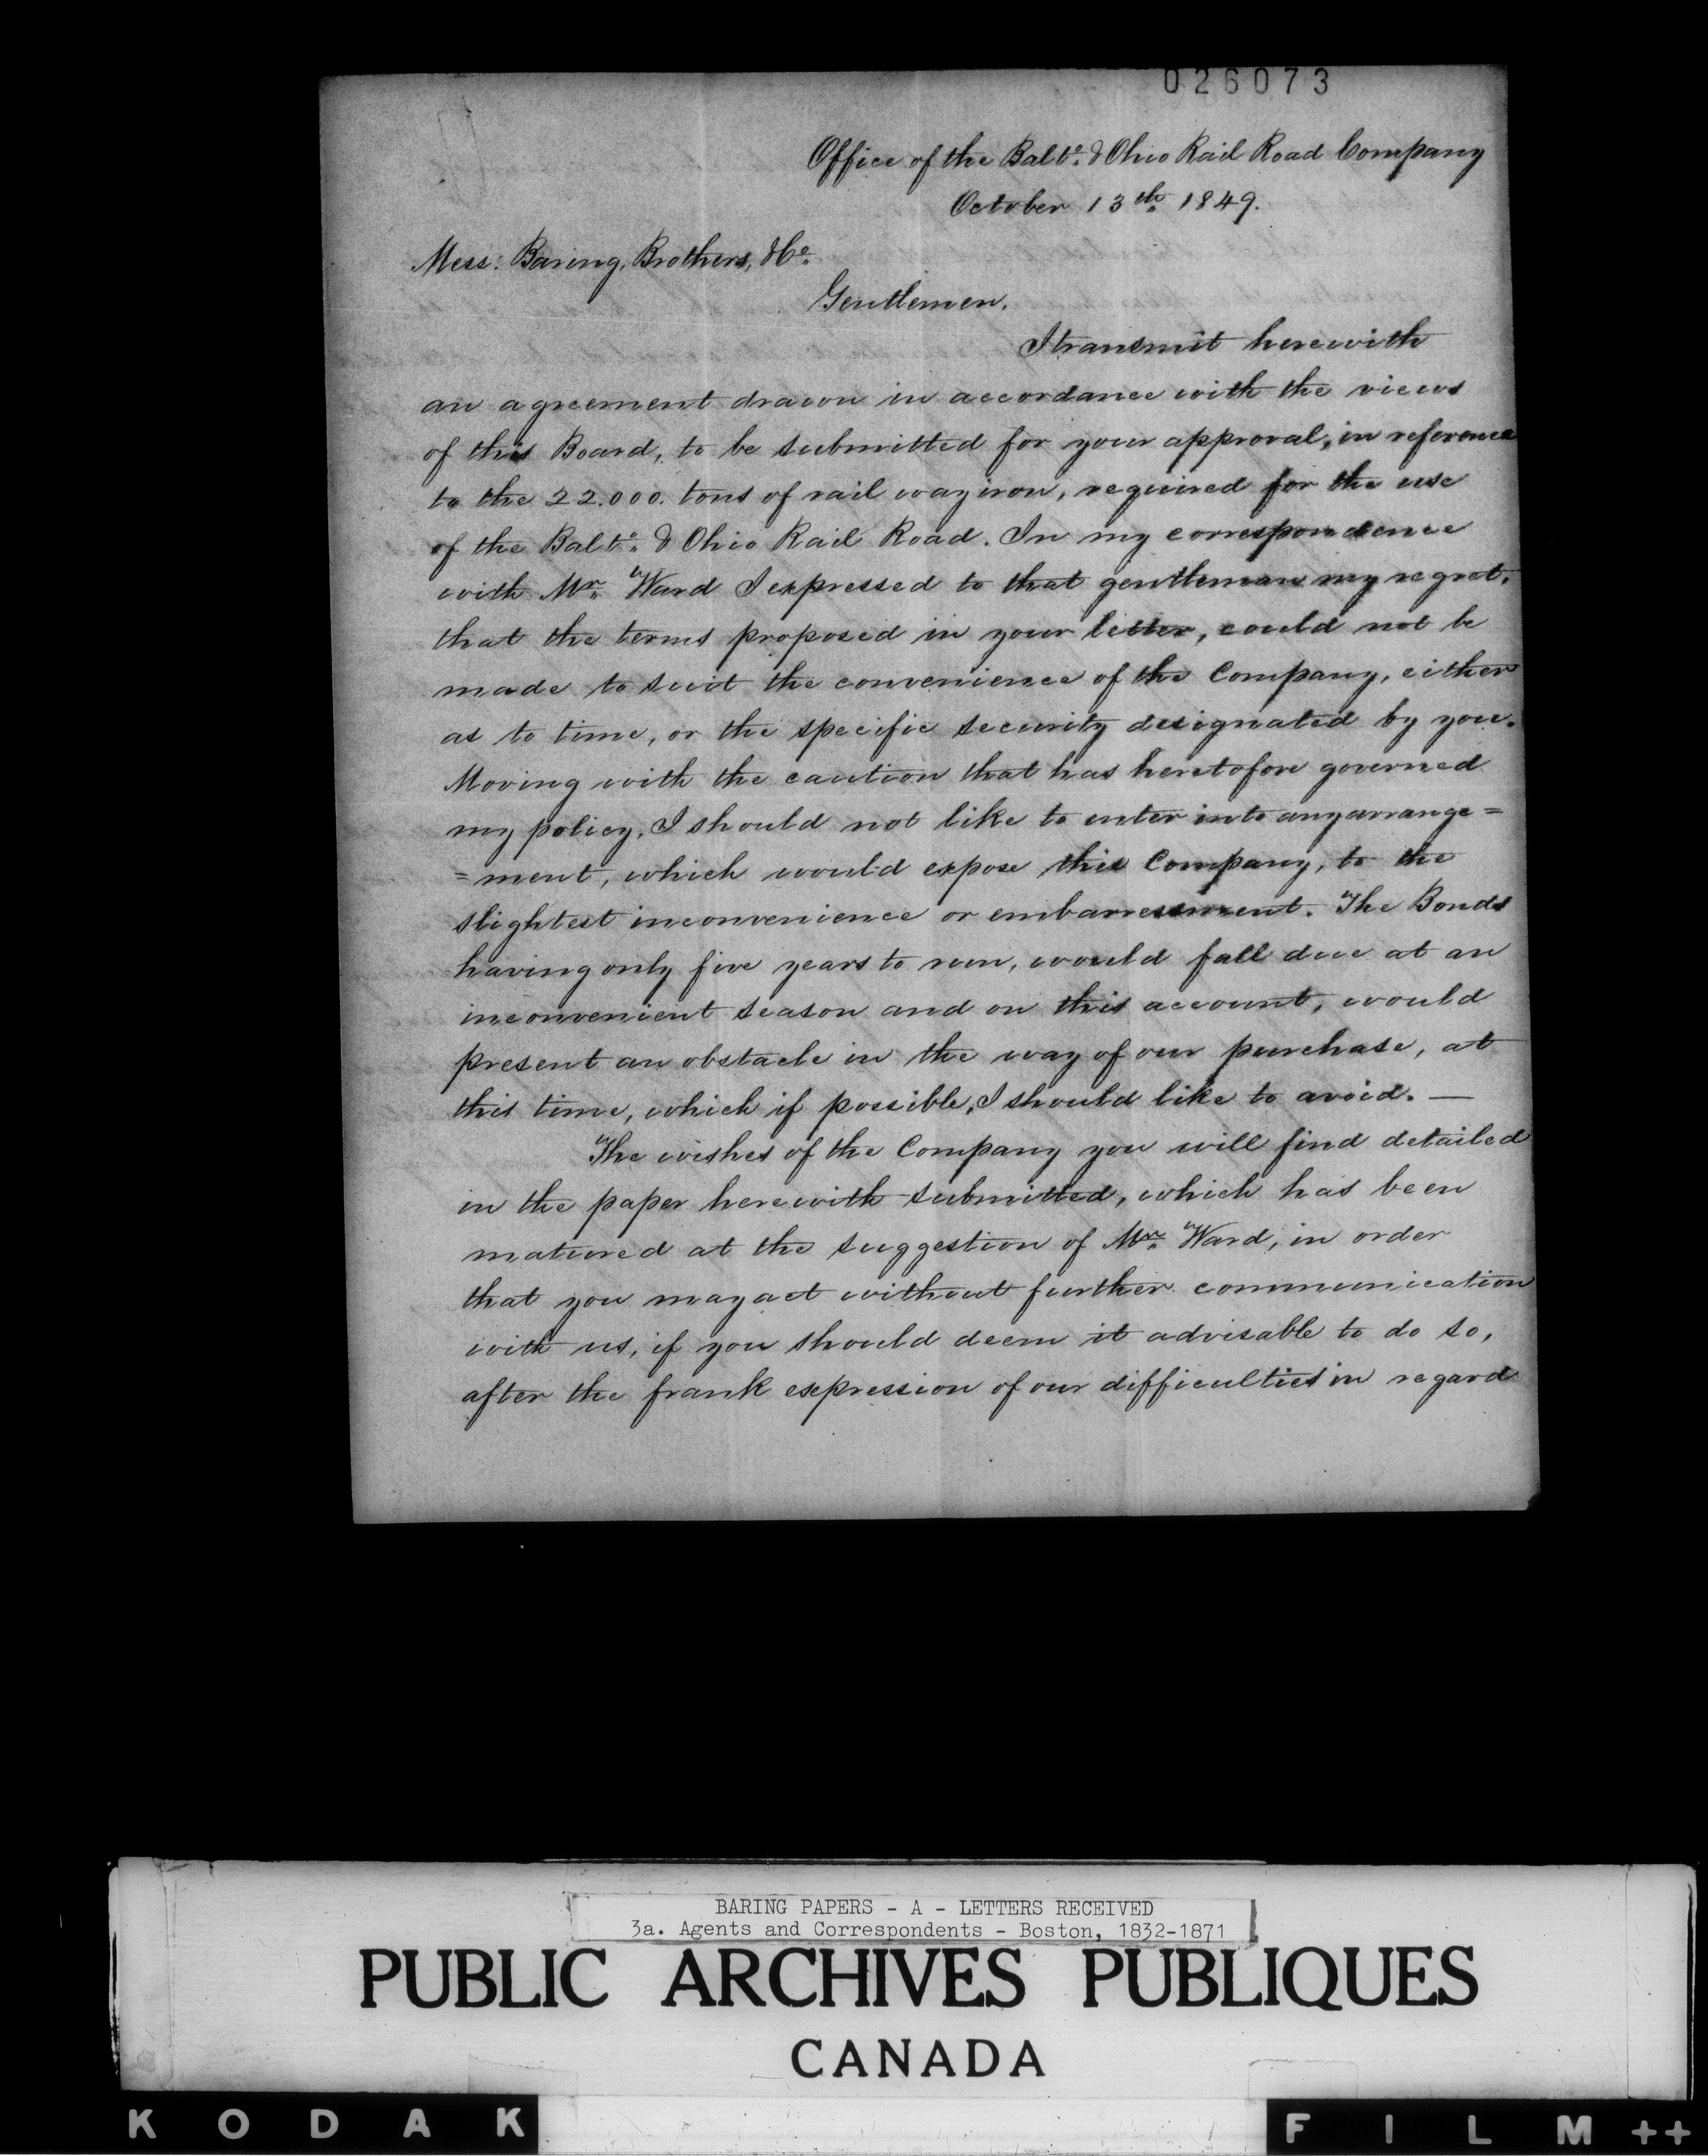 026073
Office of the Balto. & Ohio Rail Road Company
October 13th. 1849.
Mess: Baring, Brothers, & Co.
Gentlemen.
I transmit herewith
an agreement drawn in accordance with the views
of this Board, to be submitted for your approval, in reference
to the 22.000. tons of rail way iron, required for the use
of the Balto. & Ohio Rail Road. In my correspondence
with Mr. Ward I expressed to that gentleman my regret,
that the terms proposed in your letter, could not be
made to suit the convenience of the Company, either
as to time, or the specific security designated by you.
Moving with the caution that has heretofore governed
my policy, I should not like to enter into any arrange=
=ment, which would expose this Company, to the
slightest inconvenience or embarressment. The Bonds
having only five years to run, would fall due at an
inconvenient season and on this account, would
present an obstacle in the way of our purchase, at
this time, which if possible, I should like to avoid. —
The wishes of the Company you will find detailed
in the paper herewith submitted, which has been
matured at the suggestion of Mr. Ward, in order
that you may act without further communication
with us, if you should deem it advisable to do so,
after the frank expression of our difficulties in regard
BARING PAPERS - A - LETTERS RECEIVED
3a. Agents and Correspondents - Boston, 1832-1871
PUBLIC ARCHIVES PUBLIQUES
CANADA
KODAK FILM ++